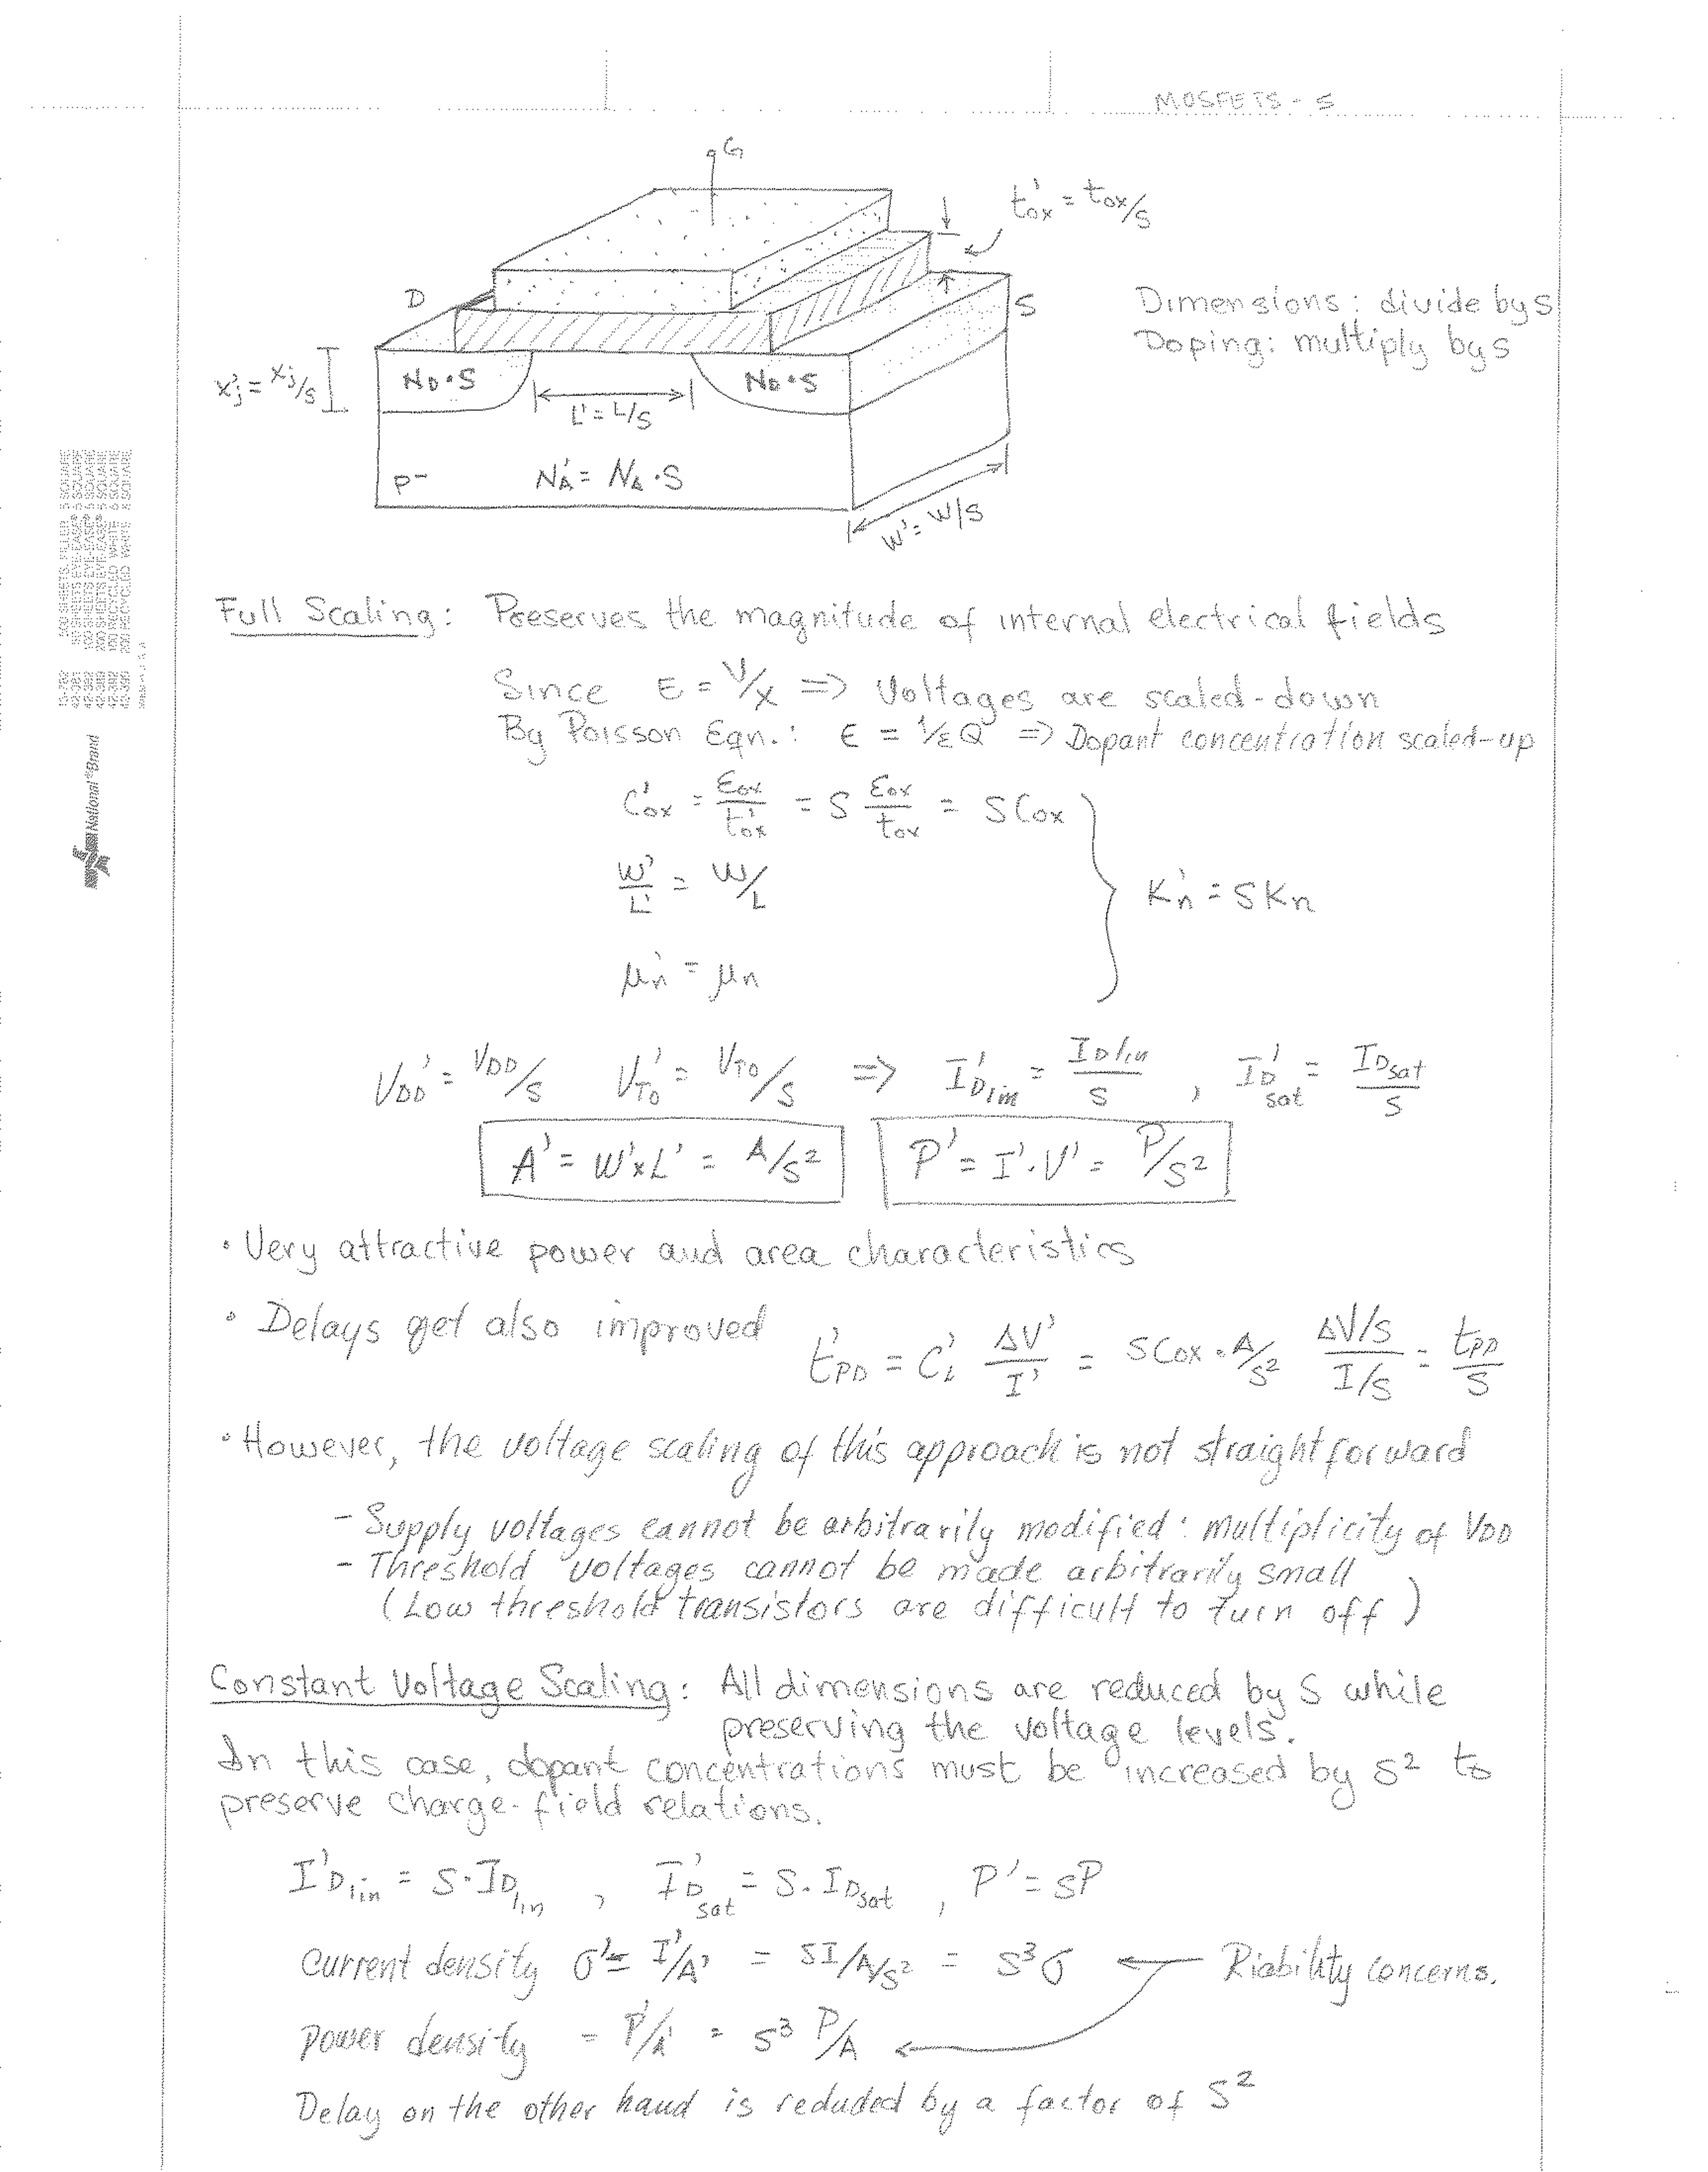 MOSFETS - 5
G
t'ox = tox/S
D
S
Dimensions: divide by S
Doping: multiply by S
x'j = xj/S
ND•S
ND•S
L' = L/S
P-
NA' = NA•S
W' = W/S
National®Brand
Full Scaling: Preserves the magnitude of internal electrical fields
Since E = V/x => Voltages are scaled-down
By Poisson Eqn.: E = 1/ε Q => Dopant concentration scaled-up
C'ox = εox/t'ox = S εox/tox = S Cox
W'/L' = W/L
K'n = S Kn
μ'n = μn
VDD' = VDD/S VT0' = VT0/S => I'Dlin = IDlin/S , I'Dsat = IDsat/S
A' = W'xL' = A/S² P' = I'.V' = P/S²
• Very attractive power and area characteristics
• Delays get also improved t'PD = C'L ΔV'/I' = S Cox • A/S² ΔV/S / I/S = tPD/S
• However, the voltage scaling of this approach is not straightforward
- Supply voltages cannot be arbitrarily modified: multiplicity of VDD
- Threshold voltages cannot be made arbitrarily small
(Low threshold transistors are difficult to turn off)
Constant Voltage Scaling: All dimensions are reduced by S while
preserving the voltage levels.
In this case, dopant concentrations must be increased by S² to
preserve charge-field relations.
I'Dlin = S.IDlin , I'Dsat = S.IDsat , P' = SP
Current density σ' = I'/A' = SI/A/S² = S³σ ← Riability concerns.
Power density = P'/A' = S³ P/A
Delay on the other hand is reduded by a factor of S²